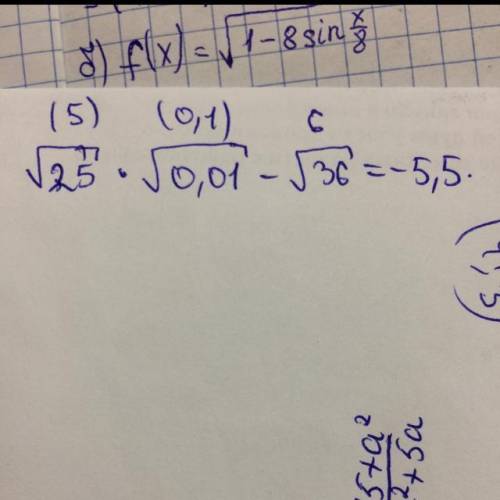 б) f(x) = √(1-8 sin x/8)
(5) (0,1) 6
√25 · √0,01 - √36 = -5,5.
5+a²
²+5a